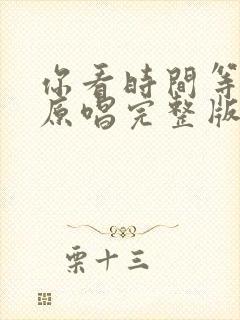 你看時間等
原唱完整版
栗十三